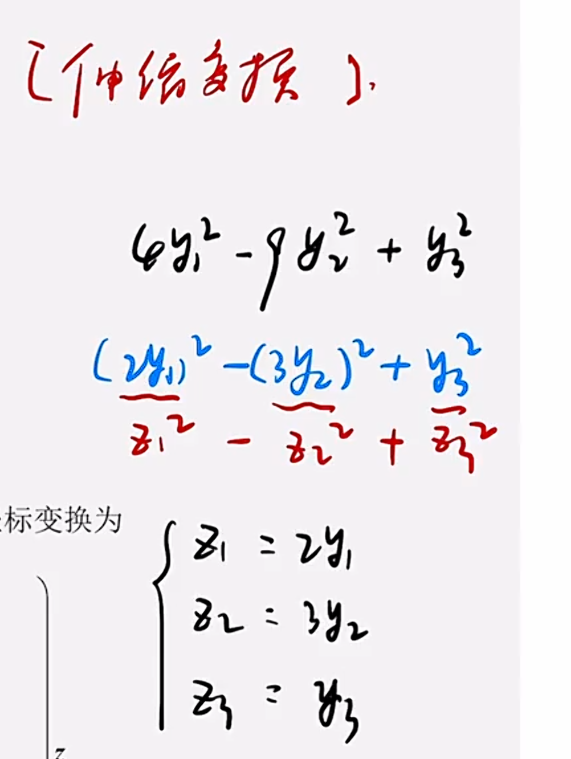 [伸缩变换].
4y₁² - 9y₂² + y₃²
(2y₁)² - (3y₂)² + y₃²
z₁² - z₂² + z₃²
标变换为
z₁ = 2y₁
z₂ = 3y₂
z₃ = y₃
z